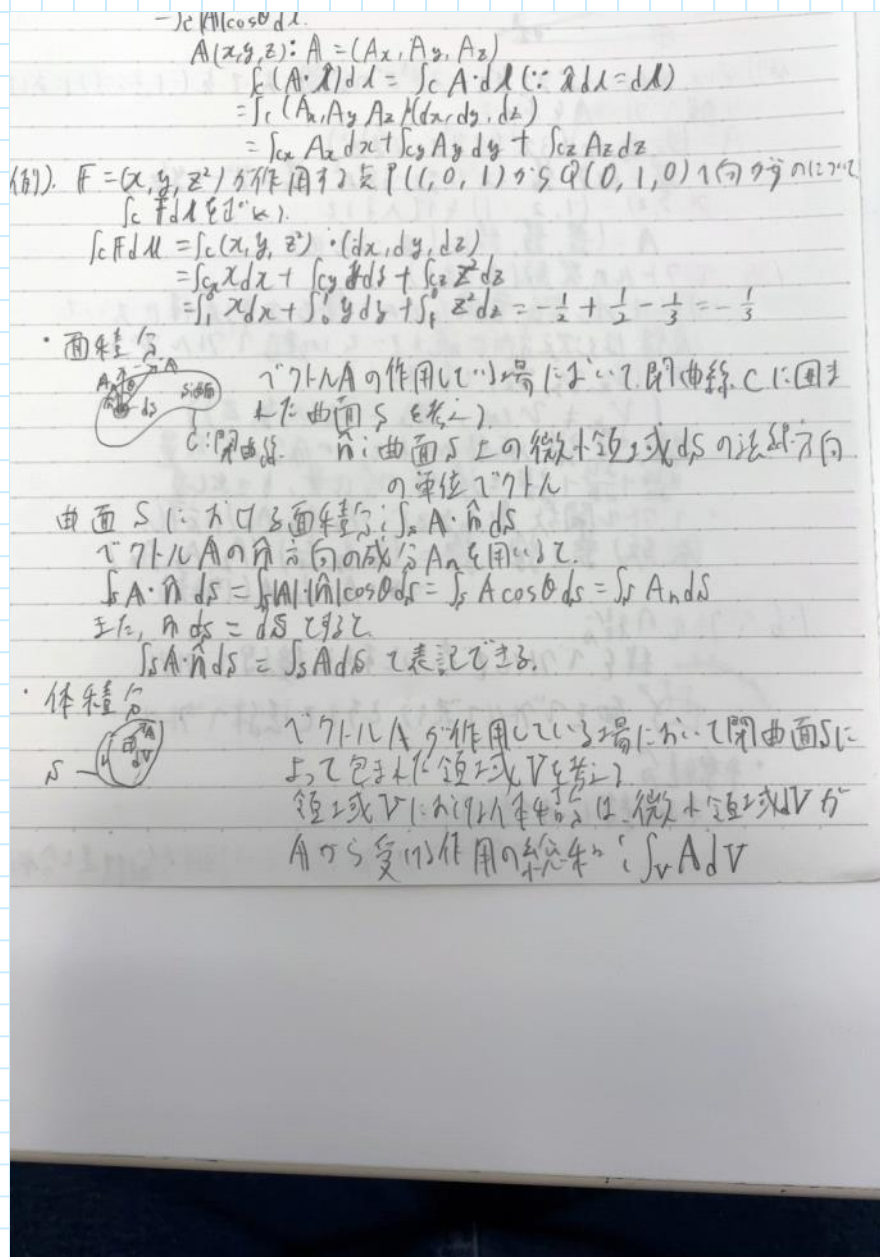 -∫c|A|cosθdl.
A(x,y,z): A=(Ax, Ay, Az)
∫c(A・l̂)dl = ∫c A・dl (∵ l̂dl=dl)
=∫c(Ax, Ay Az)(dx, dy, dz)
=∫cx Ax dx+∫cy Ay dy + ∫cz Az dz
(例). F=(x, y, z²)が作用する点P(1, 0, 1)からQ(0, 1, 0)へ向かうのについて
∫c Fdl を
∫c Fdl =∫c(x, y, z²)・(dx, dy, dz)
=∫cx xdx + ∫cy ydy +∫cz z²dz
=∫₁⁰ xdx+∫₀¹ydy+∫₁⁰ z²dz = -1/2 + 1/2 - 1/3 = -1/3
・面積分
An θ A
n̂ dS S:曲面
C:閉曲線
ベクトルAの作用している場において、閉曲線Cに囲ま
れた曲面Sを考える
n̂:曲面S上の微小領域dSの法線方向
の単位ベクトル
曲面Sにおける面積分:∫s A・n̂ dS
ベクトルAのn̂方向の成分Anを用いると、
∫s A・n̂ dS =∫s|A|・|n̂|cosθdS=∫s A cosθ dS =∫s An dS
また, n̂ dS = dS とすると、
∫s A・n̂ dS = ∫s A dS と表記できる.
・体積分
S
A
dV
ベクトルAが作用している場において閉曲面Sに
よって包まれた領域Vを考える
領域Vにおける体積分は、微小領域dVが
Aから受ける作用の総和:∫v A dV